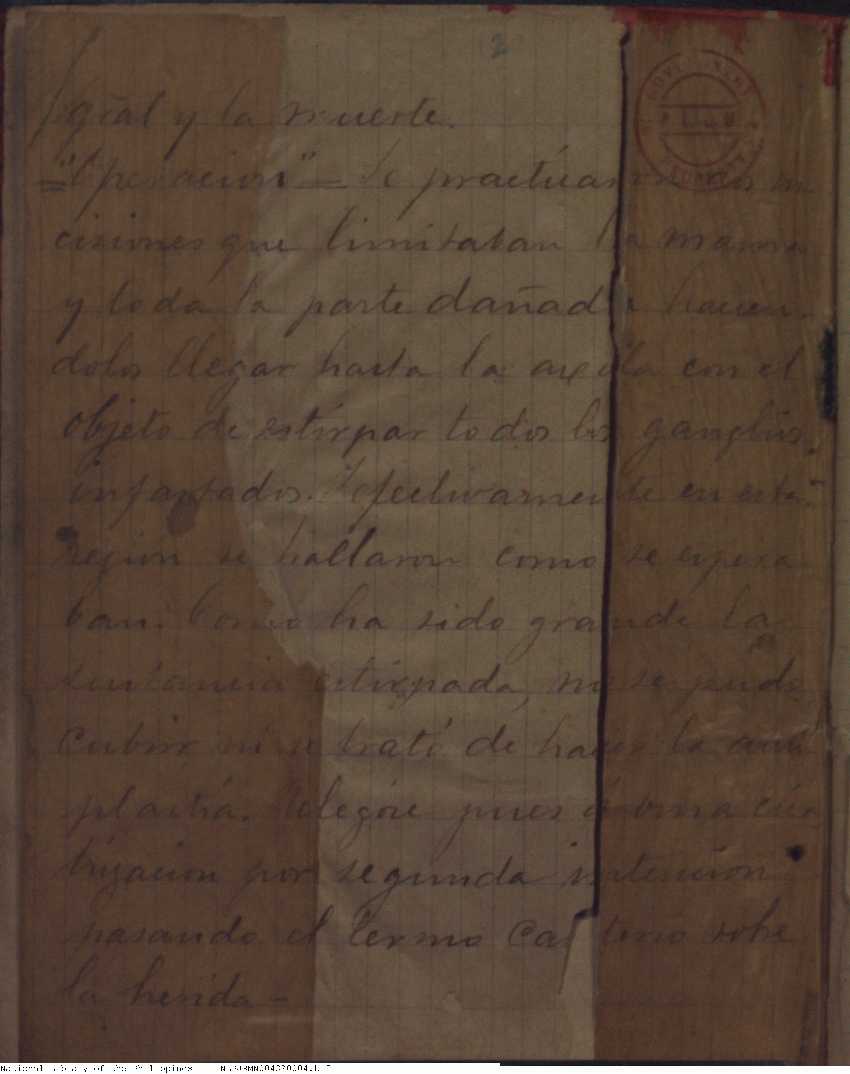 2
gral y la muerte.
="Operacion"= Se practicaron dos in
cisiones que limitaban la mama
y toda la parte dañada hacien-
dolos llegar hasta la axila con el
objeto de estirpar todos los ganglios
infartados. Efectivamente en esta
region se hallaron como se espera
ban. Como ha sido grande la
sustancia estirpada, no se pudo
cubrir ni se trató de hacer la auto
plastia. pues á una cica
trizacion por segunda intencion
pasando el termo cauterio sobre
la herida -
National Library of the Philippines